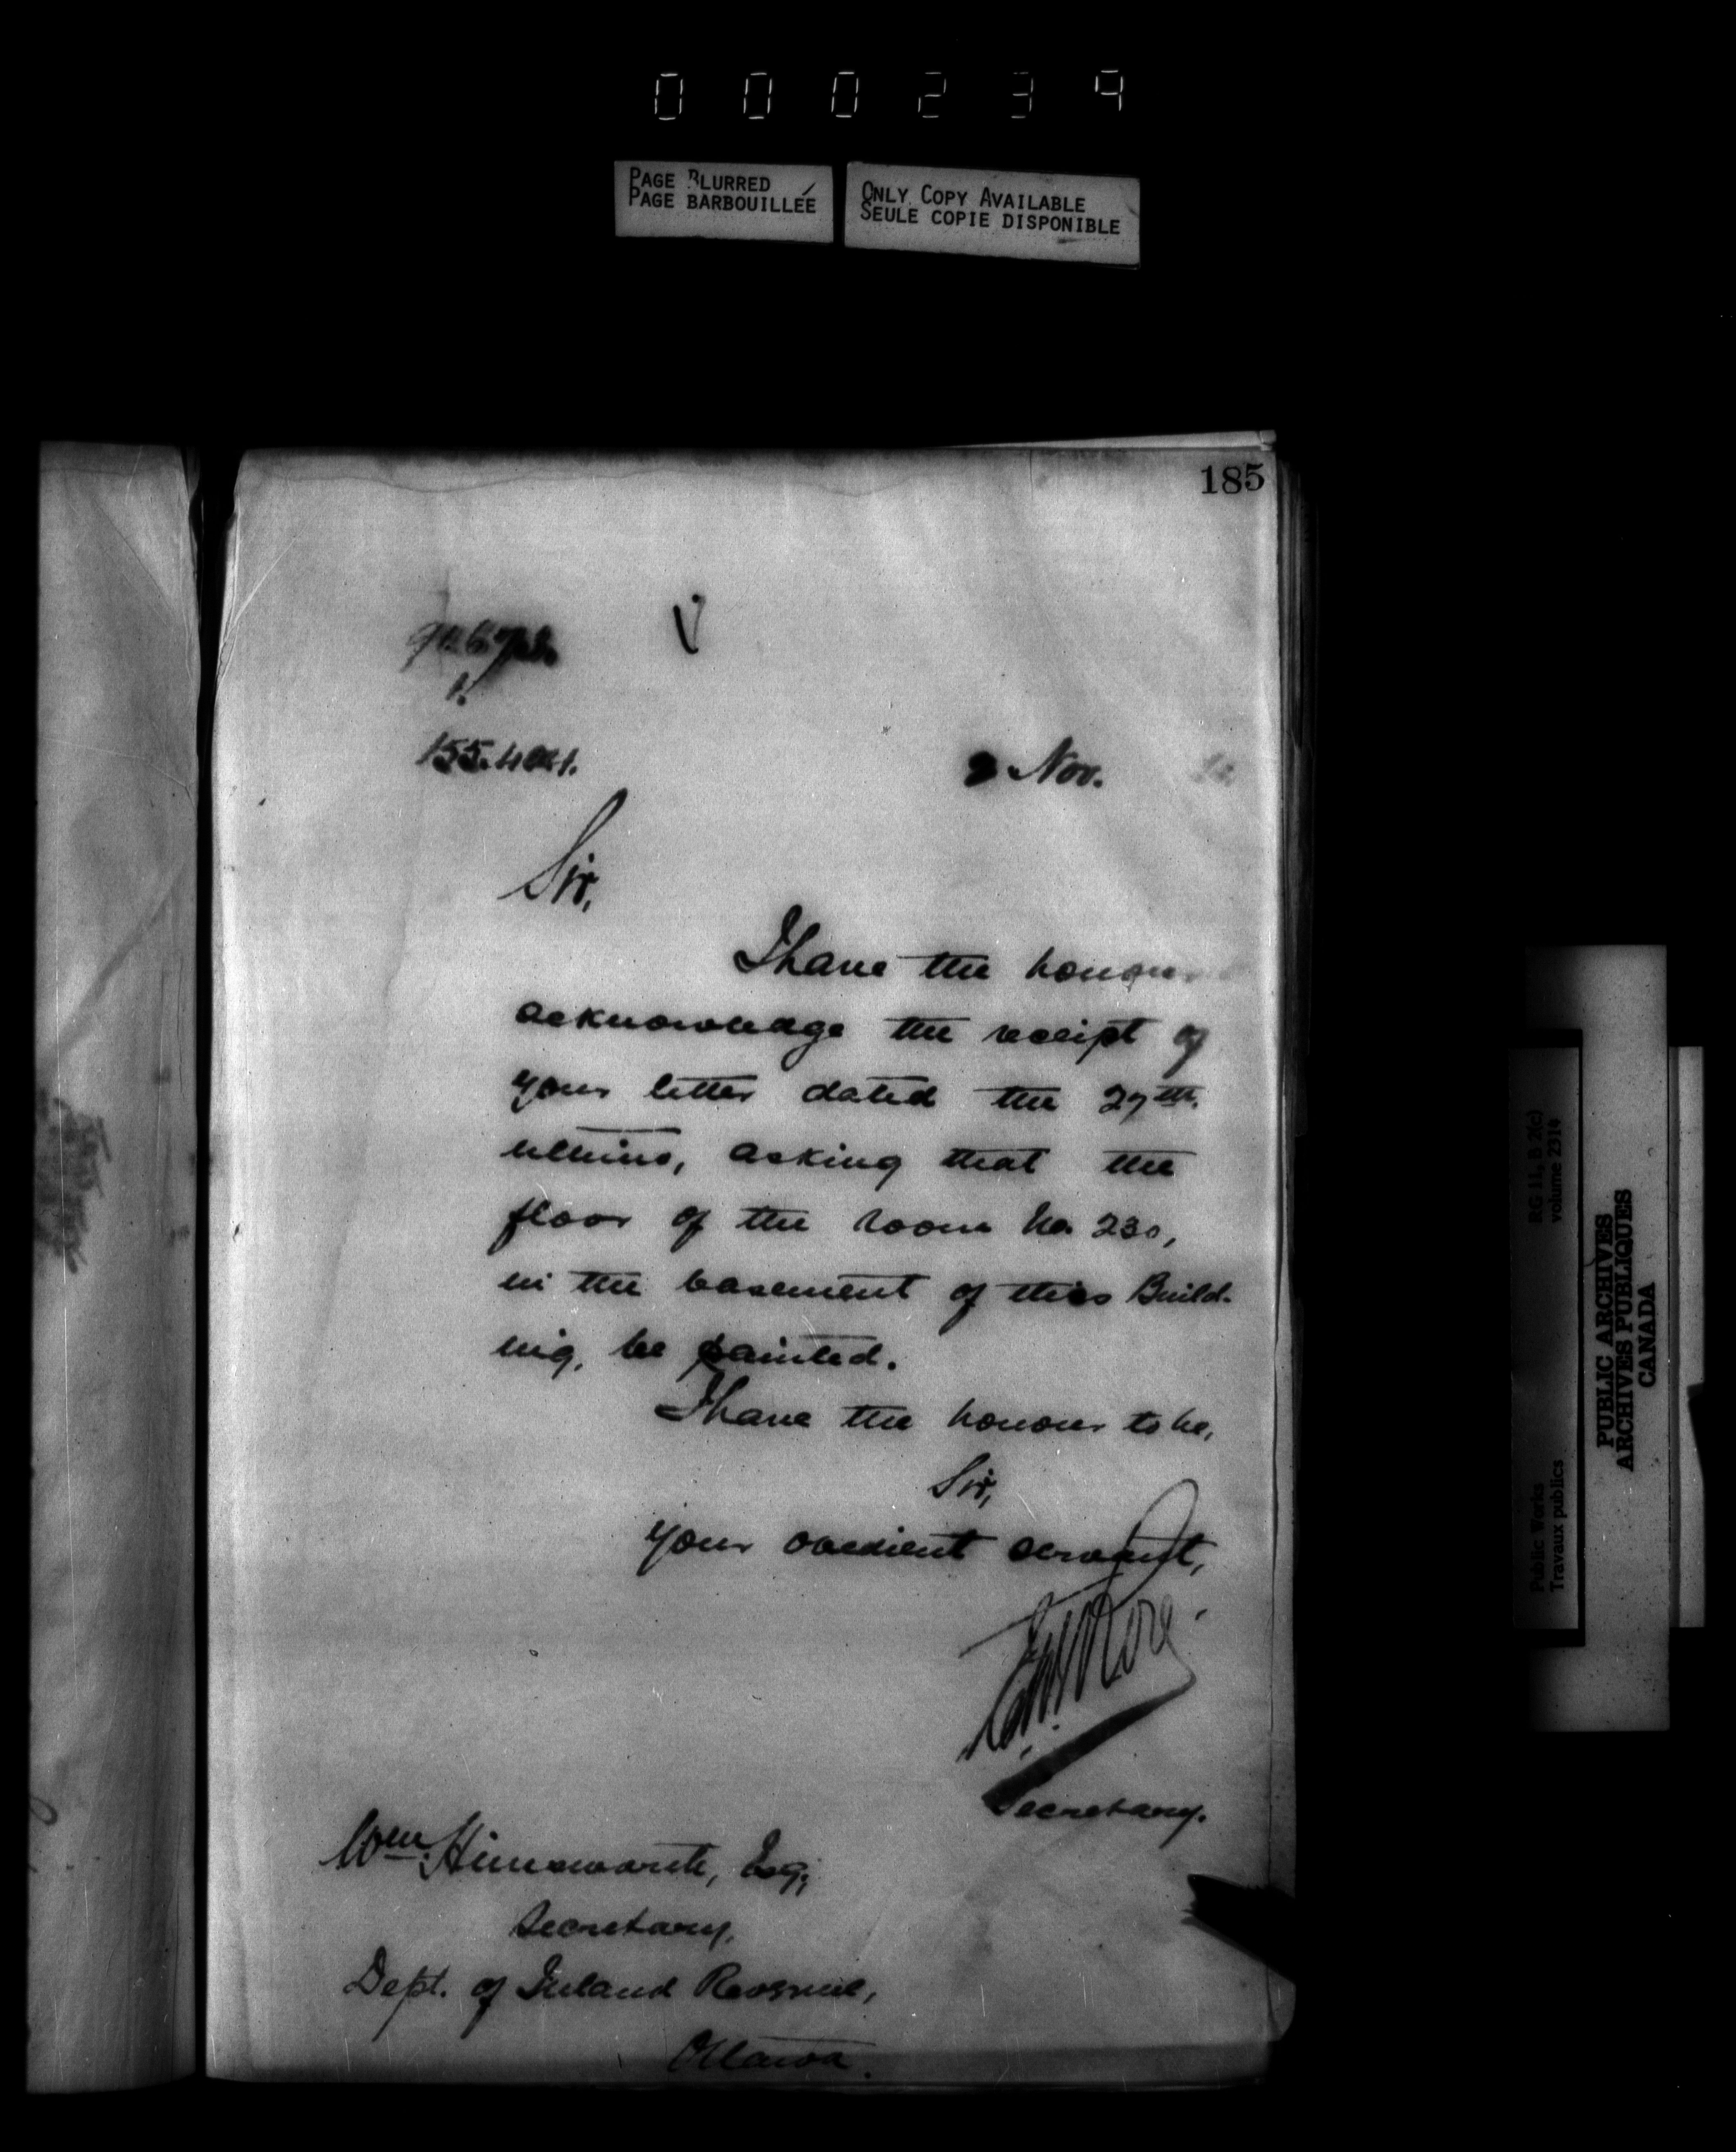 000239
PAGE BLURRED
PAGE BARBOUILLÉE
ONLY COPY AVAILABLE
SEULE COPIE DISPONIBLE
185
Nov.
Sir,
I have the honour
acknowledge the receipt of
your letter dated the 27th.
ultimo, asking that the
floor of the room No. 230,
in the basement of this Build-
ing, be painted.
I have the honour to be,
Sir,
your obedient servant,
Secretary.
Wm. Himsworth, Esq;
Secretary,
Dept. of Inland Revenue,
Ottawa.
RG 11, B 2(c)
volume 2314
Public Works
Travaux publics
PUBLIC ARCHIVES
ARCHIVES PUBLIQUES
CANADA